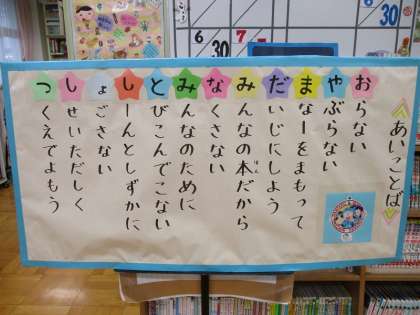 6
30
6
30
あいことば
おらない
やぶらない
まなーをまもって
だいじにしよう
みんなの本だから
ほん
なくさない
みんなのために
とびこんでこない
しーんとしずかに
ょごさない
しせいただしく
つくえでよもう